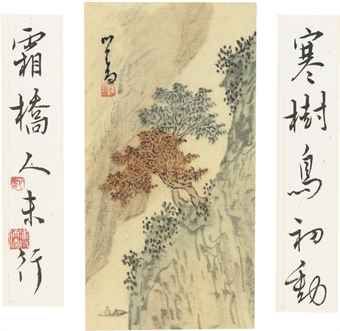 寒樹鳥初動
心畬
霜橋人未行